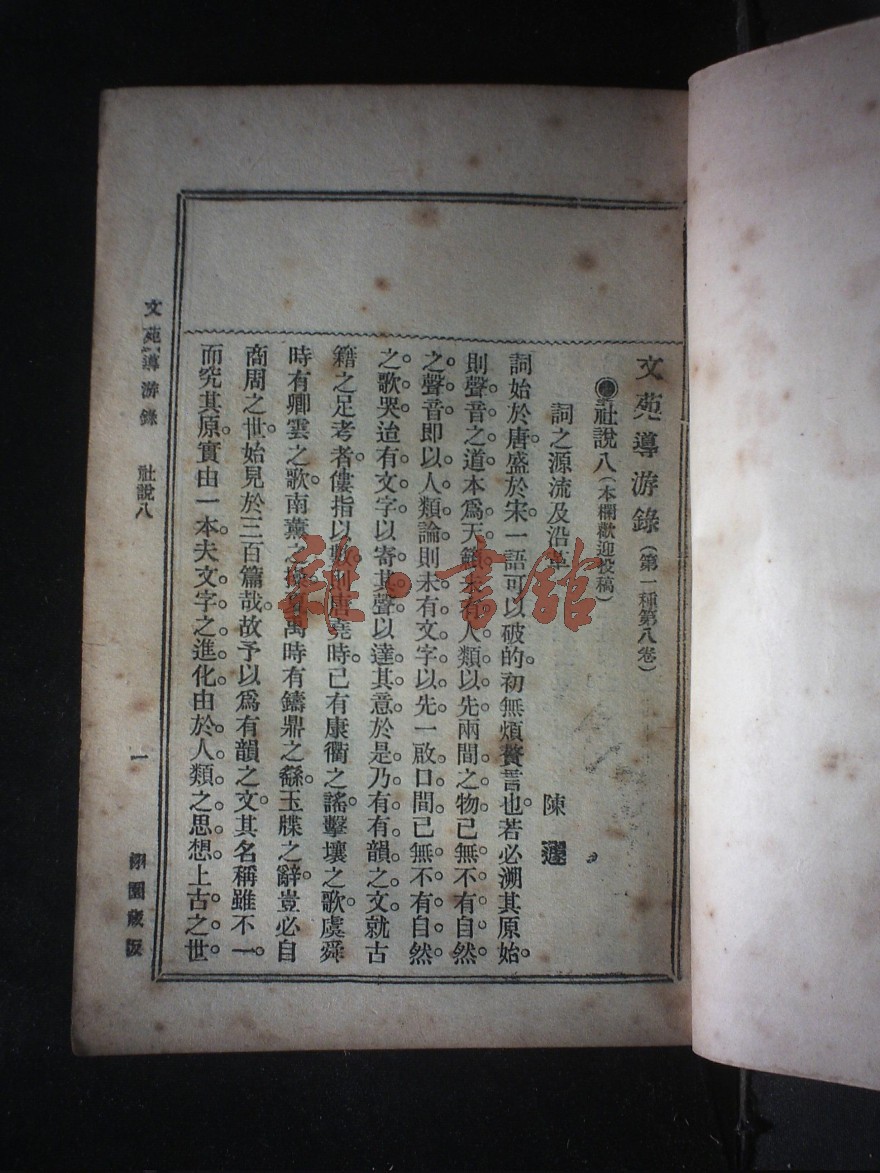 文苑導游錄(第一種第八卷)
社說八(本欄歡迎投稿)
詞之源流及沿革
陳
詞始於唐。盛於宋。一語可以破的。初無煩贅言也。若必溯其原始。
則聲音之道。本爲天籟。未有人類以先。兩間之物。已無不有自然
之聲音。即以人類論。則未有文字以先。一啟口間。已無不有自然
之歌哭。迨有文字以寄其聲。以達其意。於是乃有有韻之文。就古
籍之足考者。僂指以數。則唐堯時已有康衢之謠。擊壤之歌。虞舜
時有卿雲之歌。南薰之操。夏禹時有鑄鼎之繇。玉牒之辭。豈必自
商周之世。始見於三百篇哉。故予以爲有韻之文。其名稱雖不一。
而究其原。實由一本。夫文字之進化。由於人類之思想。上古之世。
文苑導游錄 社說八 一 栩園藏版
雜·書館